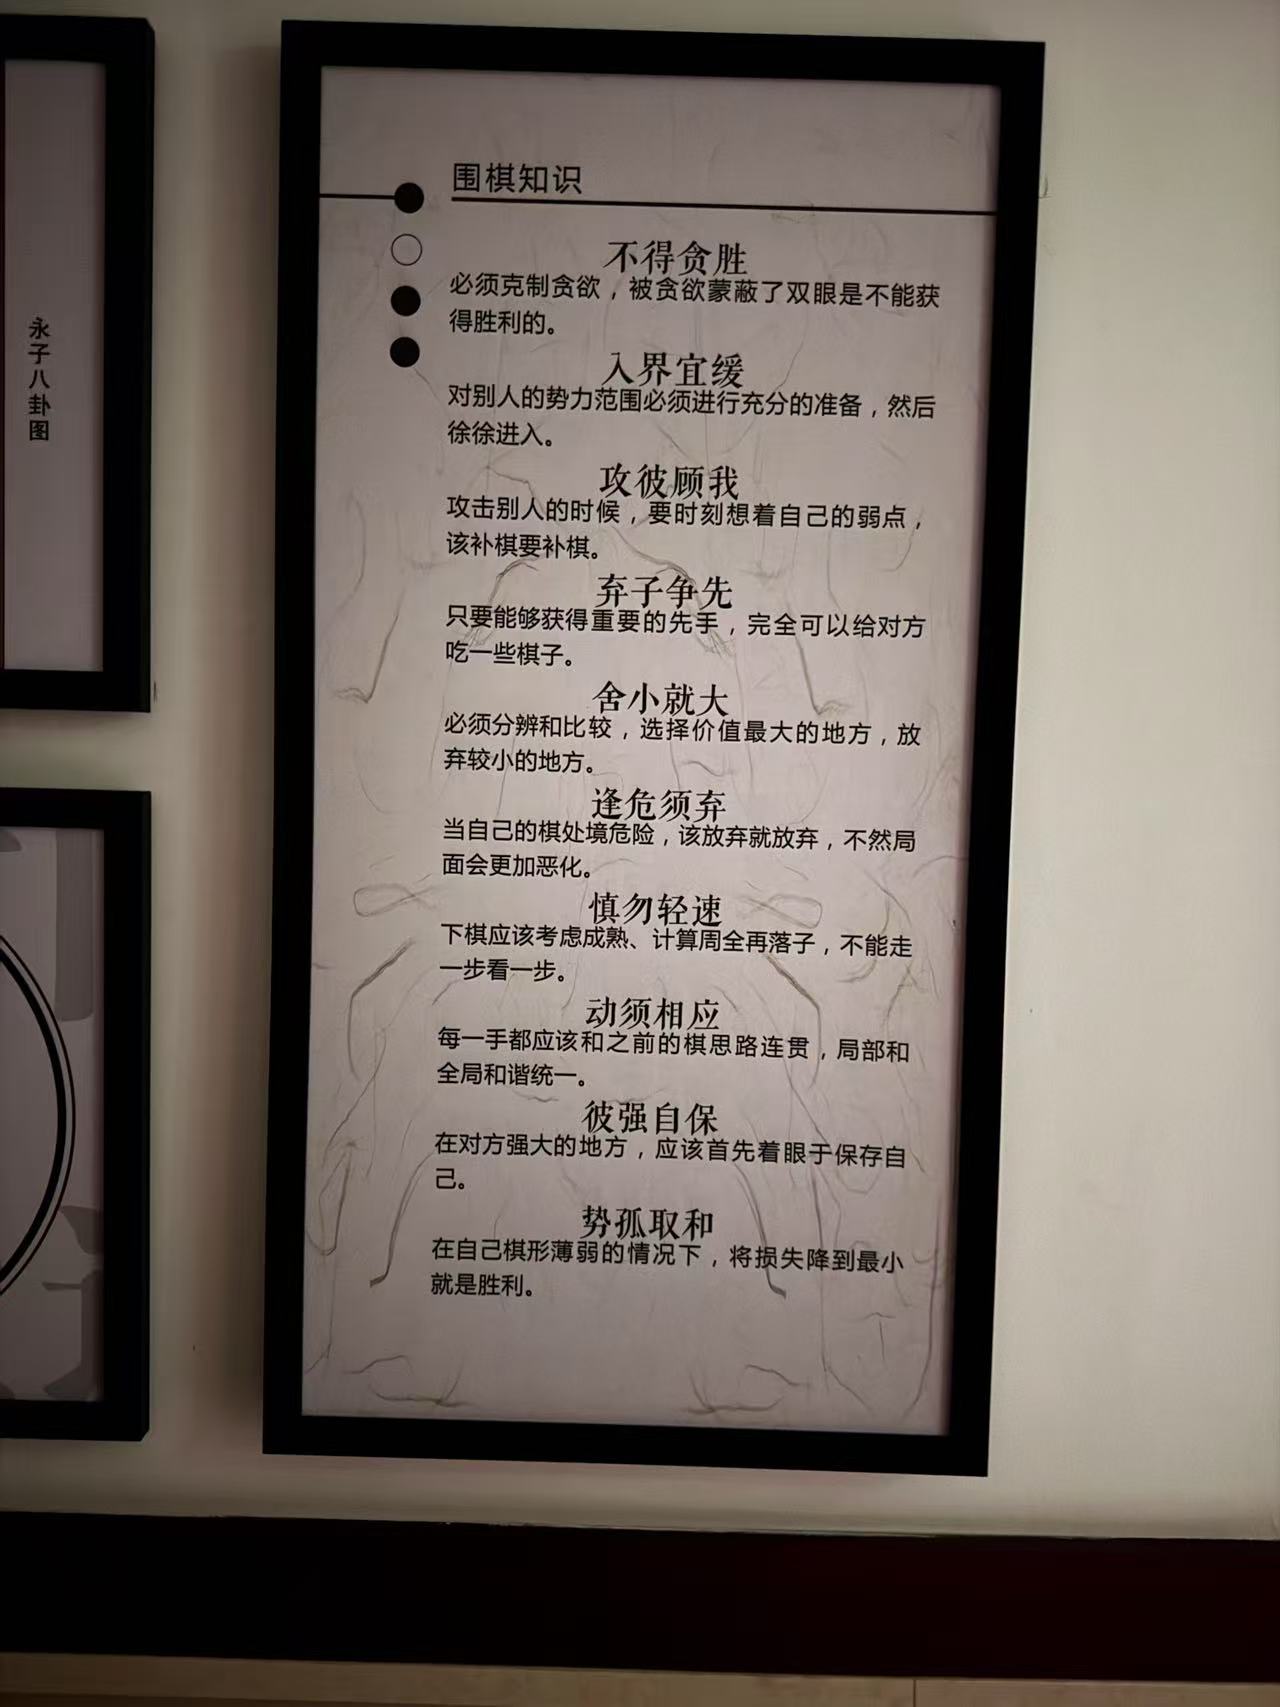 永子八卦图
围棋知识
不得贪胜
必须克制贪欲，被贪欲蒙蔽了双眼是不能获
得胜利的。
入界宜缓
对别人的势力范围必须进行充分的准备，然后
徐徐进入。
攻彼顾我
攻击别人的时候，要时刻想着自己的弱点，
该补棋要补棋。
弃子争先
只要能够获得重要的先手，完全可以给对方
吃一些棋子。
舍小就大
必须分辨和比较，选择价值最大的地方，放
弃较小的地方。
逢危须弃
当自己的棋处境危险，该放弃就放弃，不然局
面会更加恶化。
慎勿轻速
下棋应该考虑成熟、计算周全再落子，不能走
一步看一步。
动须相应
每一手都应该和之前的棋思路连贯，局部和
全局和谐统一。
彼强自保
在对方强大的地方，应该首先着眼于保存自
己。
势孤取和
在自己棋形薄弱的情况下，将损失降到最小
就是胜利。